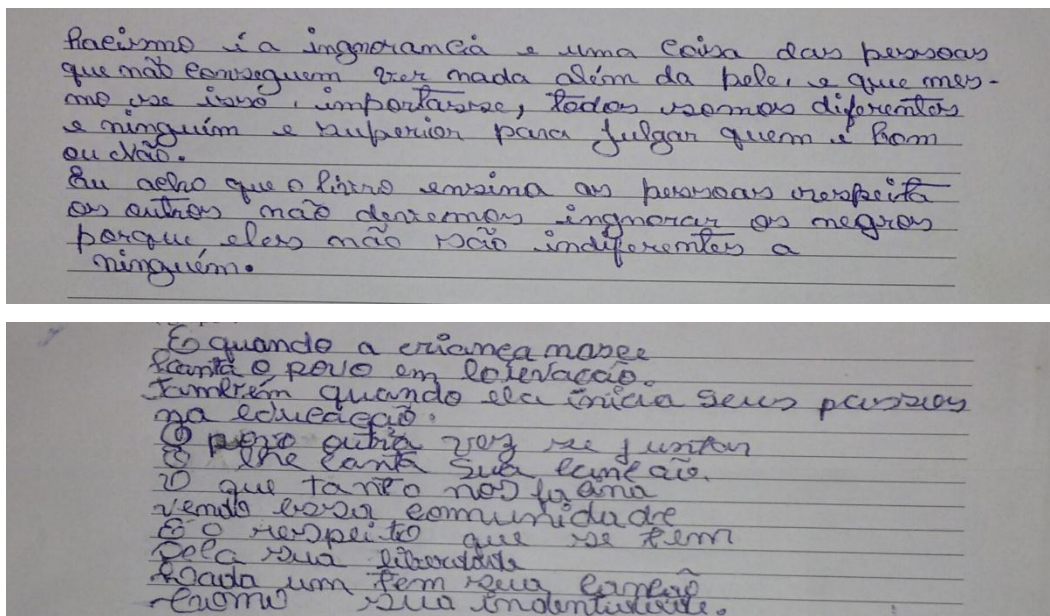 Racismo é a ingnorancia e uma coisa das pessoas
que não conseguem ver nada além da pele, e que mes-
mo se isso, importasse, todos somos diferentes
e ninguém e superior para julgar quem é bom
ou não.
Eu acho que o livro ensina as pessoas respeita
os outros não devemos ingnorar os negros
porque eles não são indiferentes a
ninguém.
E quando a criança nasce
Canta o povo em
Também quando ela inicia seus passos
na educação.
O povo outra vez se juntar
E lhe canta sua canção.
O que tanto nos
vendo essa comunidade
É o respeito que se tem
Pela sua liberdade
cada um tem sua canção
Como sua